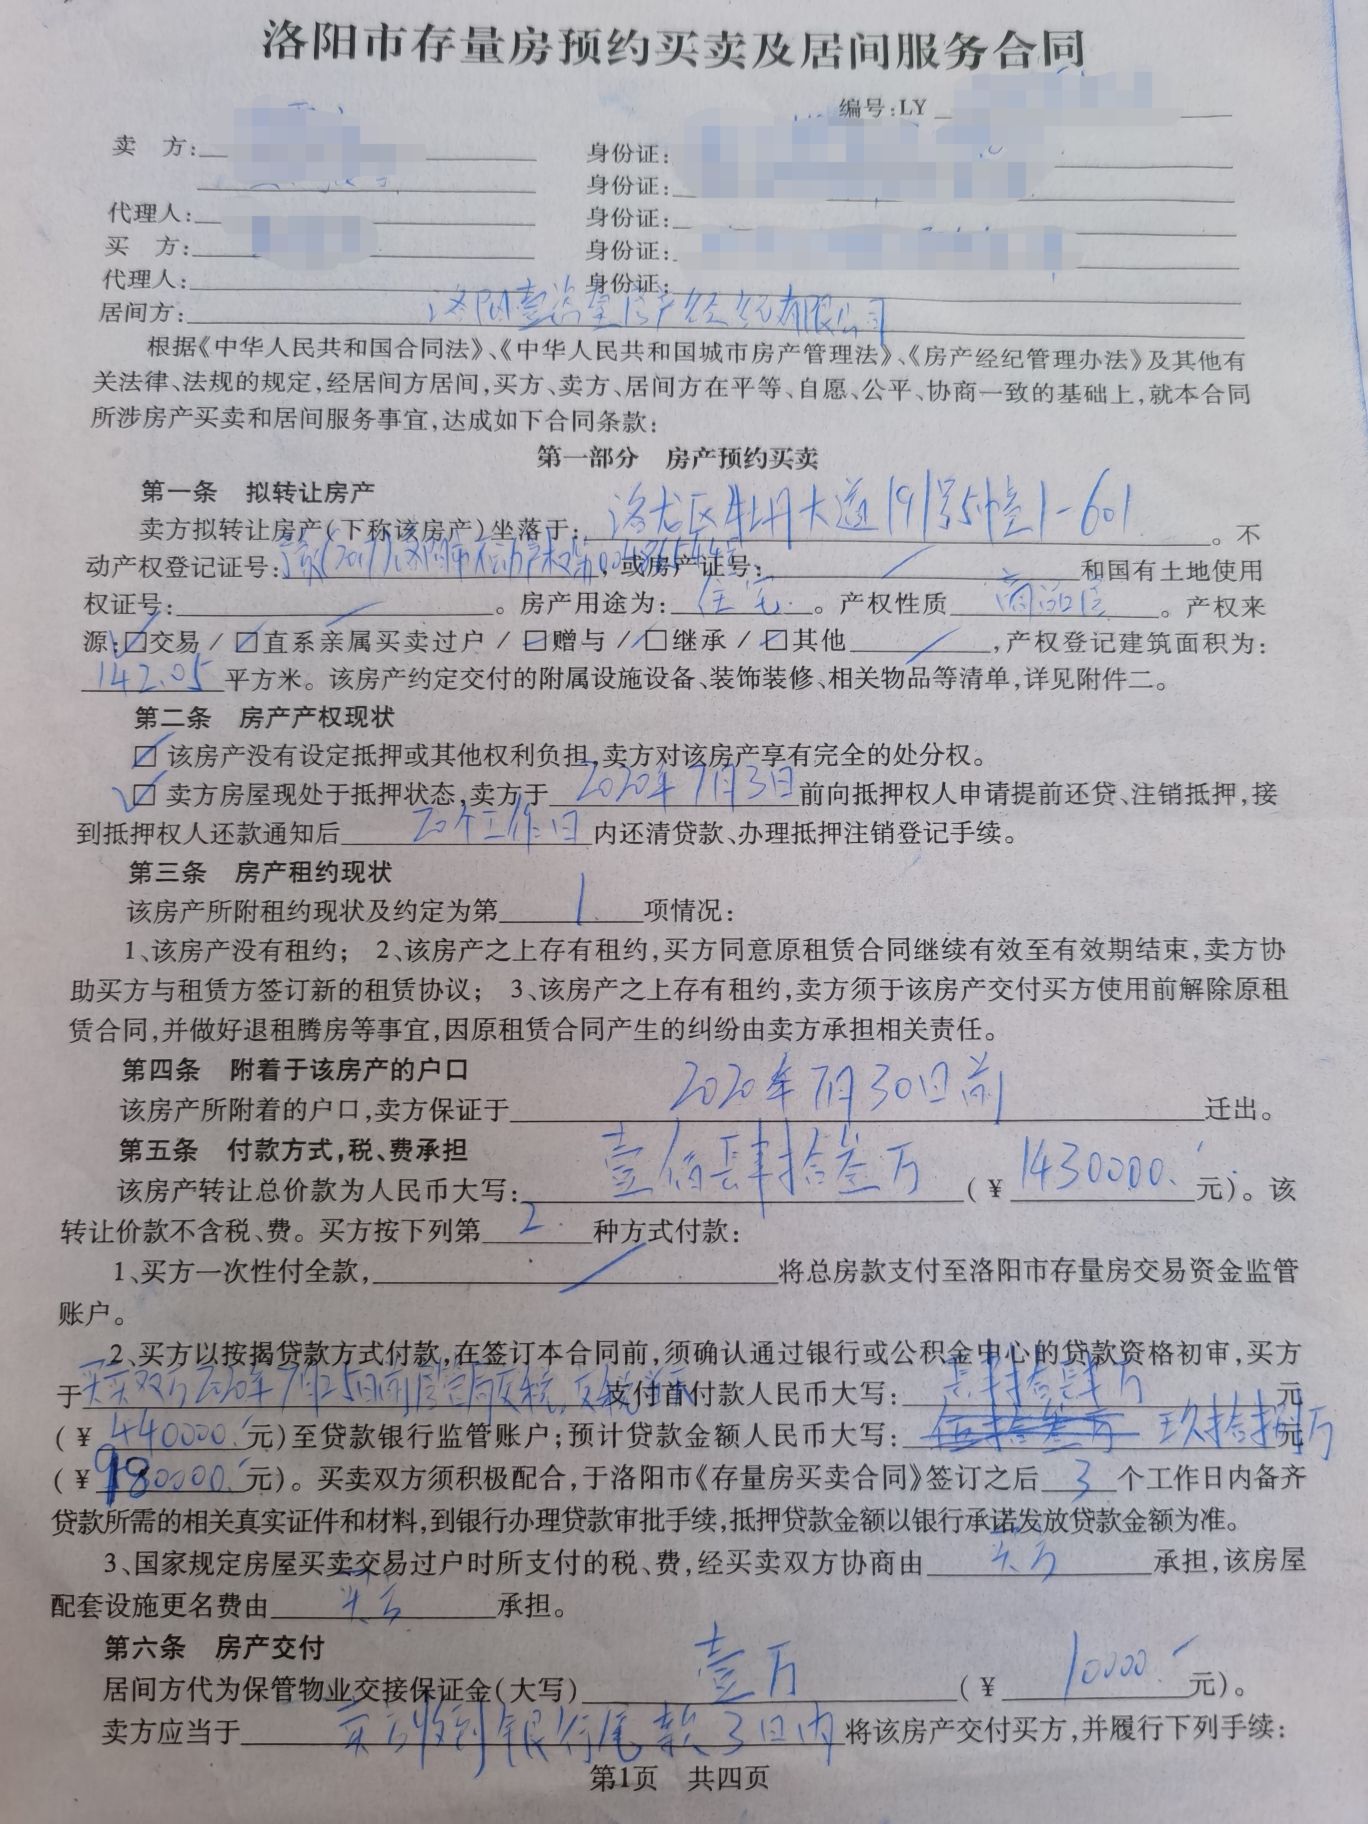 洛阳市存量房预约买卖及居间服务合同
编号:LY
卖 方: 身份证:
身份证:
代理人: 身份证:
买 方: 身份证:
代理人: 身份证:
居间方: 洛阳壹 房产经纪有限公司
根据《中华人民共和国合同法》、《中华人民共和国城市房产管理法》、《房产经纪管理办法》及其他有
关法律、法规的规定,经居间方居间,买方、卖方、居间方在平等、自愿、公平、协商一致的基础上,就本合同
所涉房产买卖和居间服务事宜,达成如下合同条款:
第一部分 房产预约买卖
第一条 拟转让房产
卖方拟转让房产(下称该房产)坐落于: 洛龙区牡丹大道191号5幢1-601。不
动产权登记证号:豫(2017)洛阳市不动产权第,或房产证号: 和国有土地使用
权证号: 。房产用途为: 住宅。产权性质 商品房。产权来
源:☑交易/☑直系亲属买卖过户/☑赠与/☐继承/☑其他 ,产权登记建筑面积为:
142.05平方米。该房产约定交付的附属设施设备、装饰装修、相关物品等清单,详见附件二。
第二条 房产产权现状
☑该房产没有设定抵押或其他权利负担,卖方对该房产享有完全的处分权。
☑卖方房屋现处于抵押状态,卖方于2020年7月3日前向抵押权人申请提前还贷、注销抵押,接
到抵押权人还款通知后20个工作日内还清贷款、办理抵押注销登记手续。
第三条 房产租约现状
该房产所附租约现状及约定为第1项情况:
1、该房产没有租约; 2、该房产之上存有租约,买方同意原租赁合同继续有效至有效期结束,卖方协
助买方与租赁方签订新的租赁协议; 3、该房产之上存有租约,卖方须于该房产交付买方使用前解除原租
赁合同,并做好退租腾房等事宜,因原租赁合同产生的纠纷由卖方承担相关责任。
第四条 附着于该房产的户口
该房产所附着的户口,卖方保证于2020年7月30日前迁出。
第五条 付款方式,税、费承担
该房产转让总价款为人民币大写: 壹佰肆拾叁万(¥1430000.元)。该
转让价款不含税、费。买方按下列第2.种方式付款:
1、买方一次性付全款, 将总房款支付至洛阳市存量房交易资金监管
账户。
2、买方以按揭贷款方式付款,在签订本合同前,须确认通过银行或公积金中心的贷款资格初审,买方
于买卖双方2020年7月25日前房管局 支付首付款人民币大写: 肆拾肆万元
(¥440000.元)至贷款银行监管账户;预计贷款金额人民币大写: 玖拾捌万元
(¥980000.元)。买卖双方须积极配合,于洛阳市《存量房买卖合同》签订之后3个工作日内备齐
贷款所需的相关真实证件和材料,到银行办理贷款审批手续,抵押贷款金额以银行承诺发放贷款金额为准。
3、国家规定房屋买卖交易过户时所支付的税、费,经买卖双方协商由买方承担,该房屋
配套设施更名费由买方承担。
第六条 房产交付
居间方代为保管物业交接保证金(大写)壹万(¥10000.元)。
卖方应当于卖方收到银行尾款3日内将该房产交付买方,并履行下列手续:
第1页 共四页